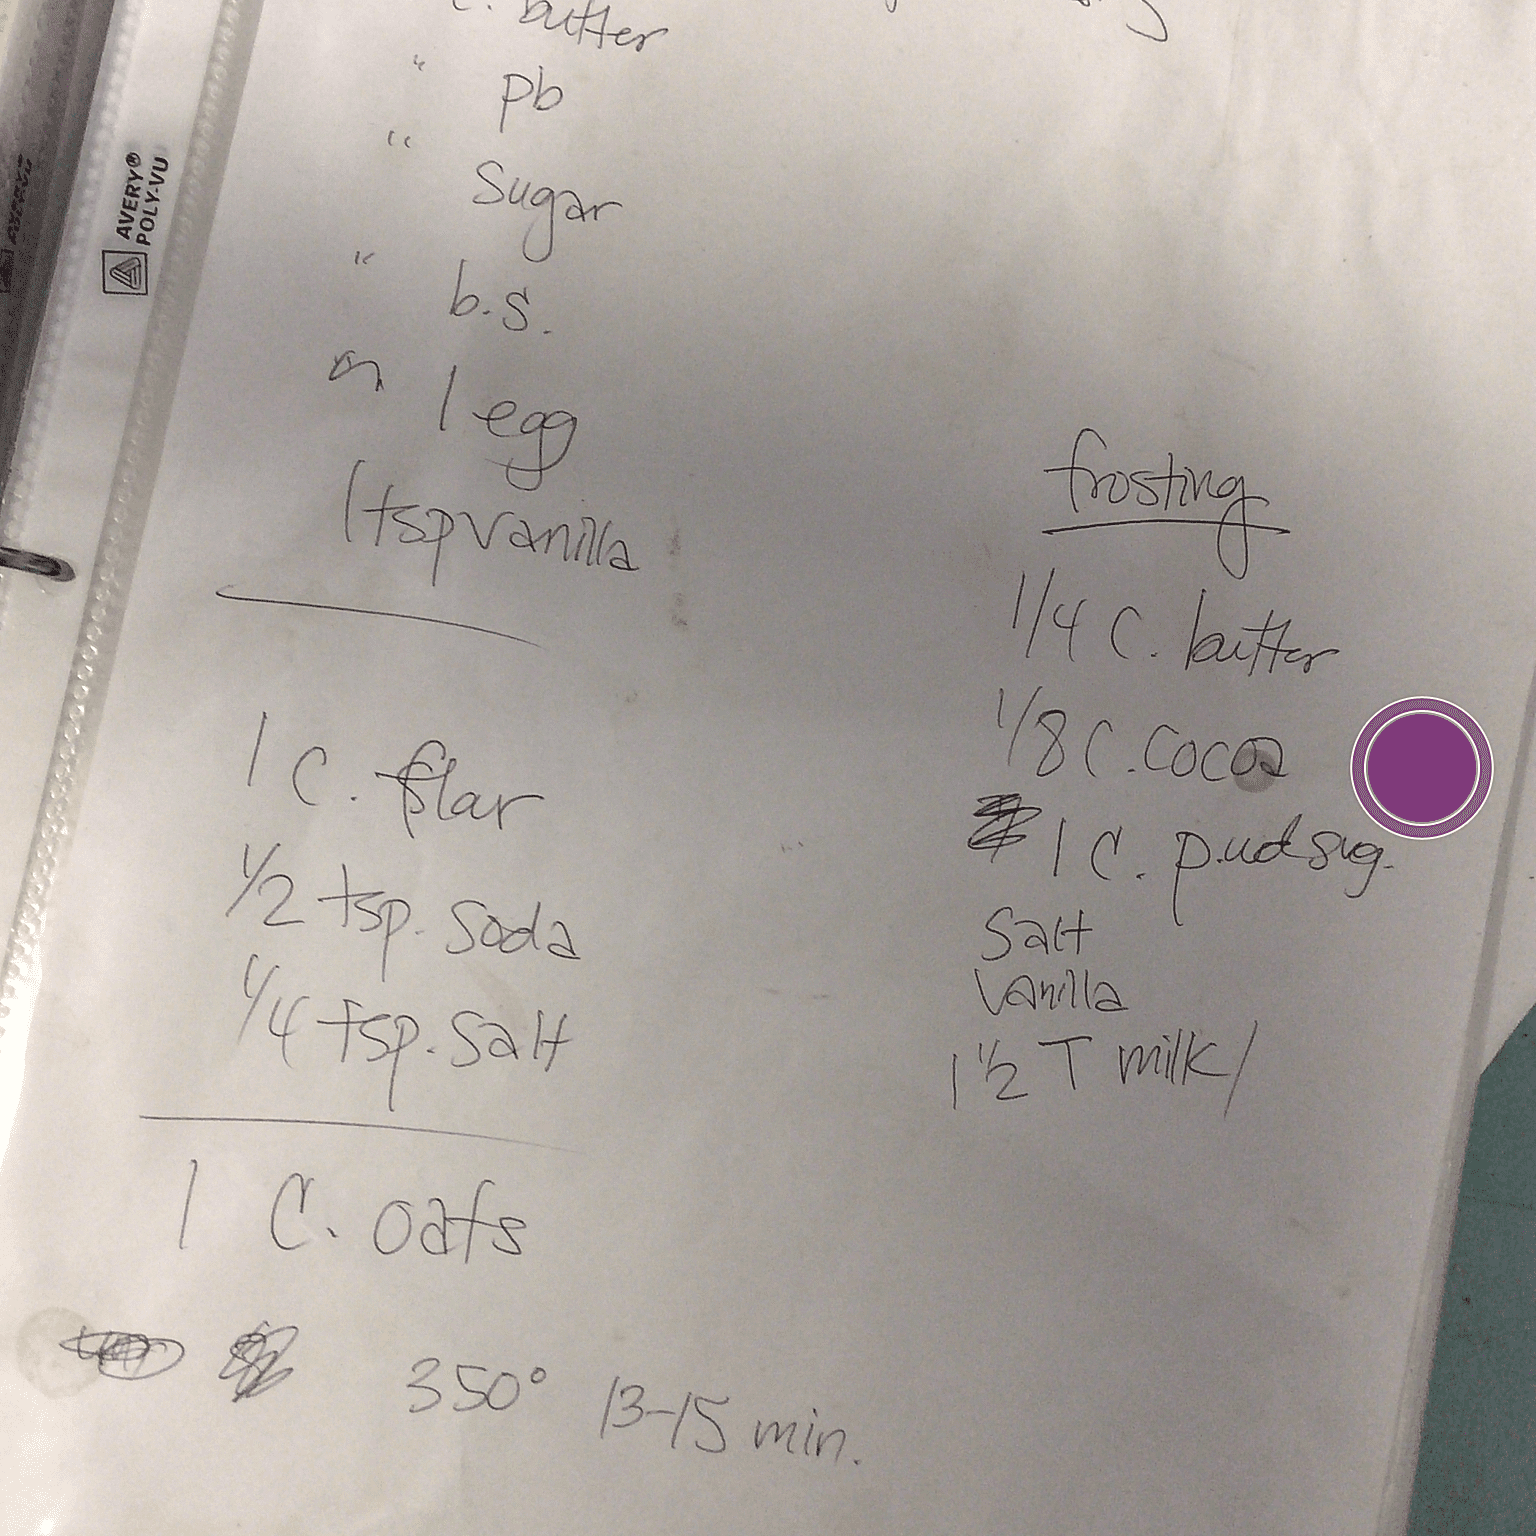 C. butter
" pb
" sugar
" b.s.
1 egg
1 tsp vanilla
1 C. flar
1/2 tsp. soda
1/4 tsp. salt
1 C. oats
350° 13-15 min.
frosting
1/4 C. butter
1/8 C. cocoa
1 C. p.wd sug.
Salt
Vanilla
1 1/2 T milk/
AVERY®
POLY-VU